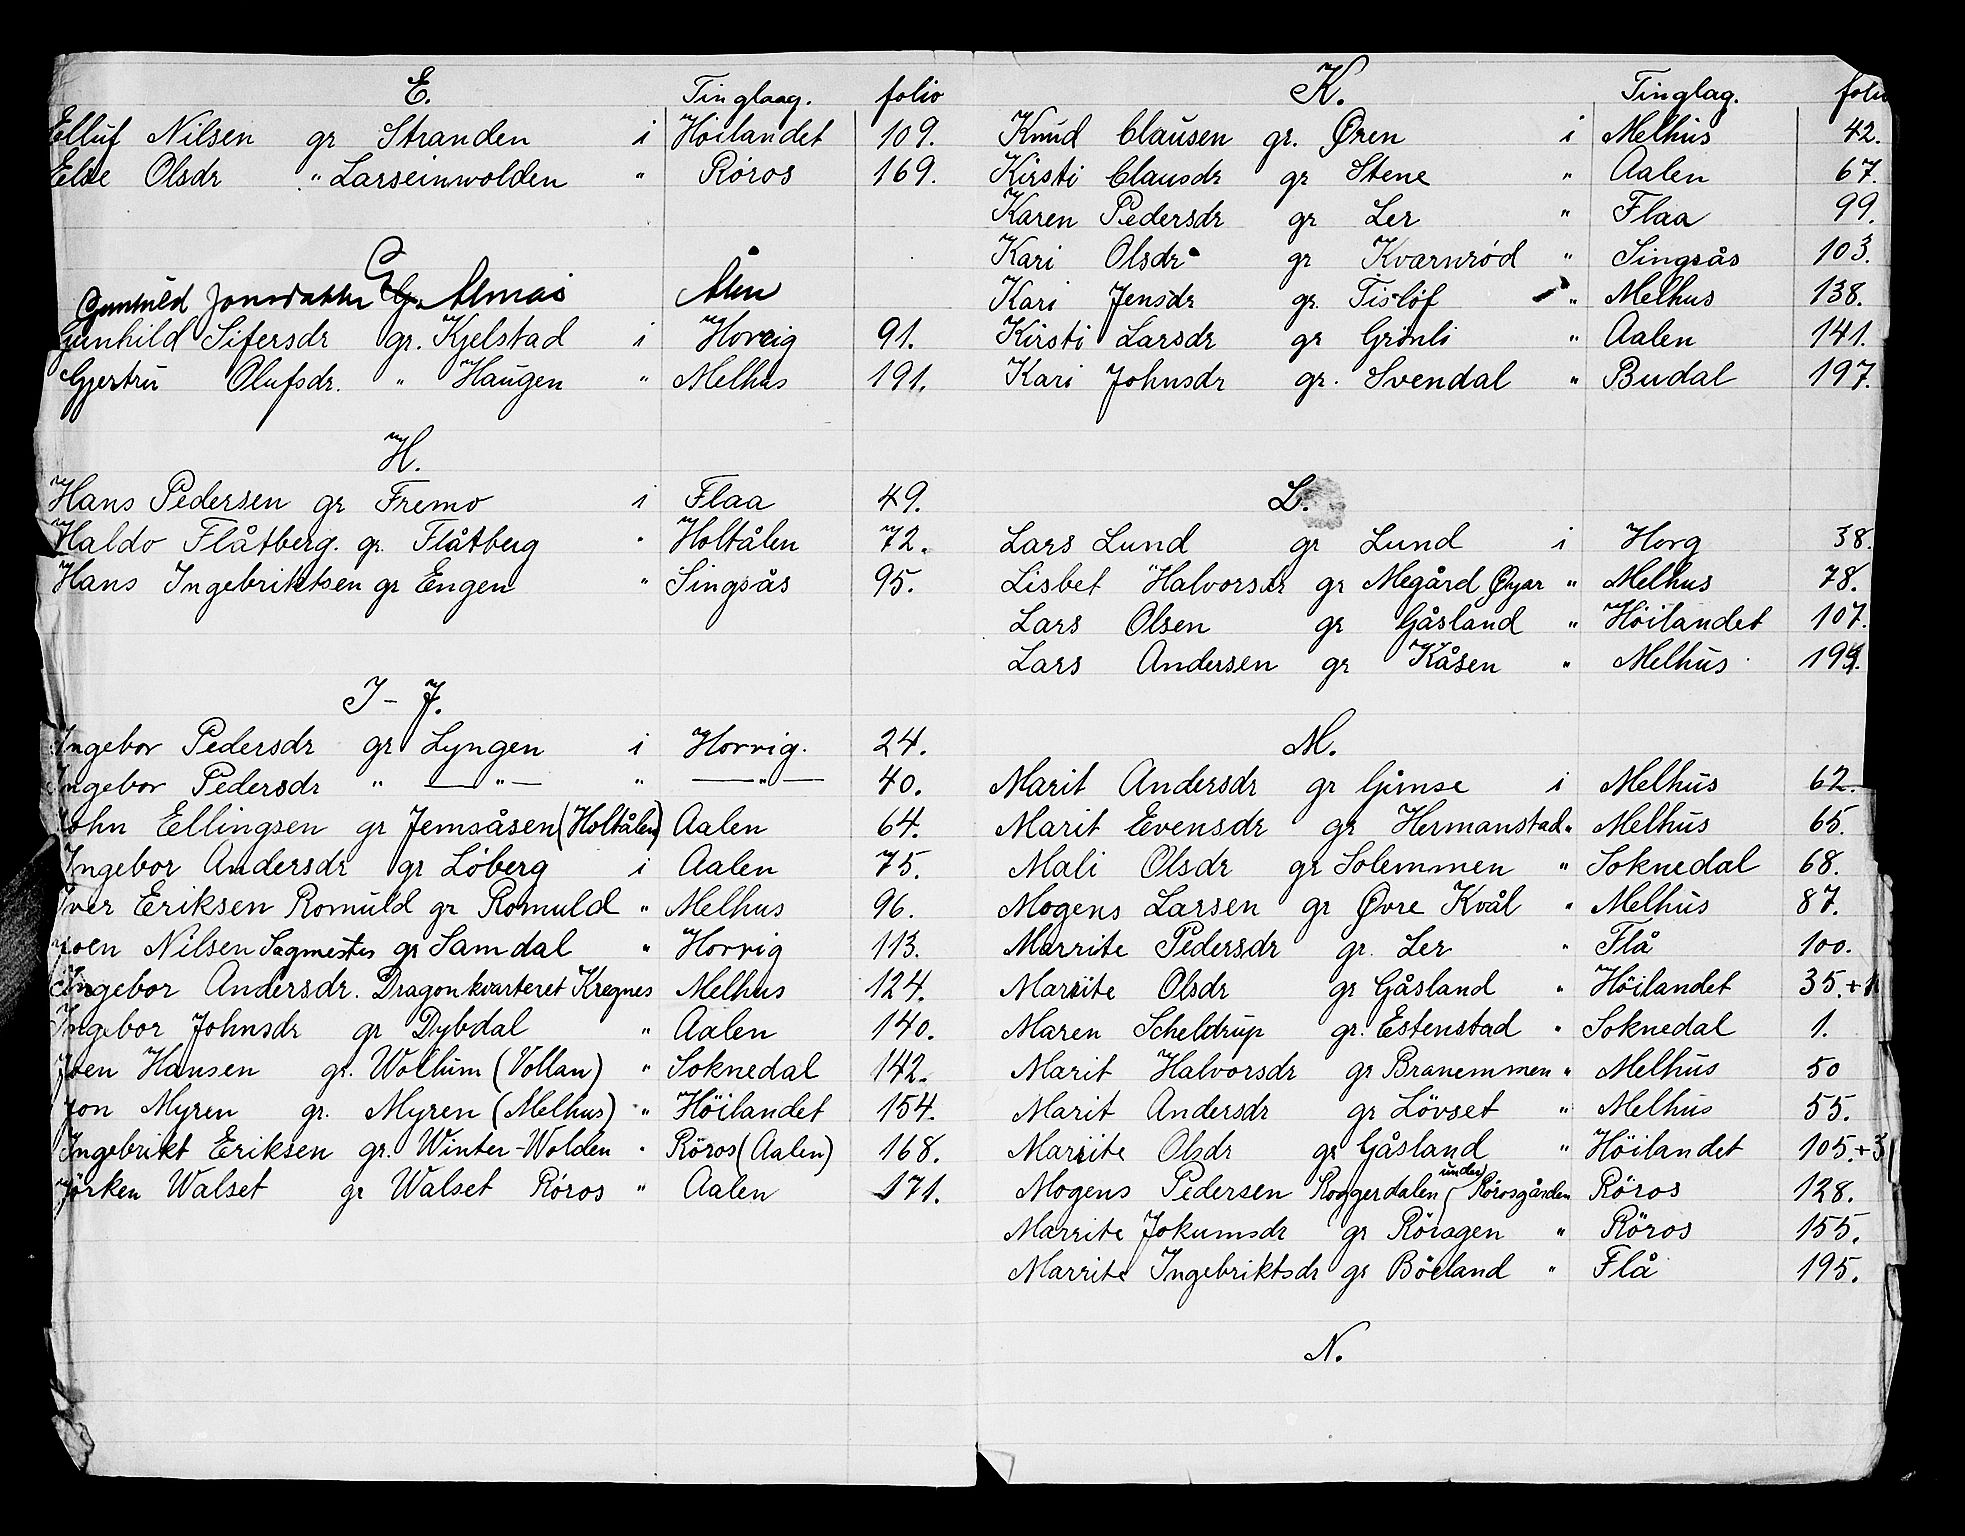 E. Tinglaag. folio
Elluf Nilsen gr Stranden i Höilandet 109.
Else Olsdr " Larseinwolden " Röros 169.
G.
Gunhild Jonsdatter G. Almås Ålen
Gunhild Sifersdr gr. Kjelstad i Horrig 91.
Gjertru Olufsdr. " Haugen " Melhus 191.
H.
Hans Pedersen gr Fremo i Flaa 49.
Haldo Flåtberg. gr. Flåtberg " Holtålen 72.
Hans Ingebriktsen gr Engen " Singsås 95.
I - J.
Ingebor Pedersdr gr Lyngen i Horrig. 24.
Ingebor Pedersdr " — " — " — " — 40.
John Ellingsen gr Jemsåsen (Holtålen) Aalen 64.
Ingebor Andersdr gr Löberg i Aalen 75.
Iver Eriksen Romuld gr Romuld " Melhus 96.
Joen Nilsen Sagmester gr Samdal " Horrig 113.
Ingebor Andersdr. Dragonkvarteret Kregnes Melhus 124.
Ingebor Johnsdr gr Dybdal " Aalen 140.
Joen Hansen gr. Wollum (Vollan) " Soknedal 142.
Jon Myren gr. Myren (Melhus) " Höilandet 154.
Ingebrikt Eriksen gr. Winter-Wolden " Röros (Aalen) 168.
Jörken Walset gr Walset Röros " Aalen 171.
K. Tinglag. folio
Knud Clausen gr. Øren i Melhus 42.
Kirsti Clausdr gr Stene " Aalen 67.
Karen Pedersdr gr Ler " Flaa 99.
Kari Olsdr gr Kvarnrød " Singsås 103.
Kari Jensdr gr. Tislöf " Melhus 138.
Kirsti Larsdr gr Grönli " Aalen 141.
Kari Johnsdr gr. Svendal " Budal 197.
L.
Lars Lund gr Lund i Horg 38.
Lisbet Halvorsdr gr Megård Øyar " Melhus 78.
Lars Olsen gr Gåsland " Höilandet 107.
Lars Andersen gr Kåsen " Melhus
M.
Marit Andersdr gr Gimse i Melhus 62.
Marit Evensdr gr Hermanstad " Melhus 65.
Mali Olsdr gr Solemmen " Soknedal 68.
Mogens Larsen gr Øvre Kvål " Melhus 87.
Marrite Pedersdr gr. Ler " Flå 100.
Marite Olsdr gr Gåsland " Höilandet 35.+1
Maren Scheldrup gr. Estenstad " Soknedal 1.
Marit Halvorsdr gr Branemmen " Melhus 50
Marit Andersdr gr Lövset " Melhus 55.
Marite Olsdr gr Gåsland " Höilandet 105.+3
Mogens Pedersen Roggerdalen (under Rörosgården Röros 128.
Marrite Jokumsdr gr Röragen " Röros 155.
Marrite Ingebriktsdr gr Böeland " Flå 195.
N.